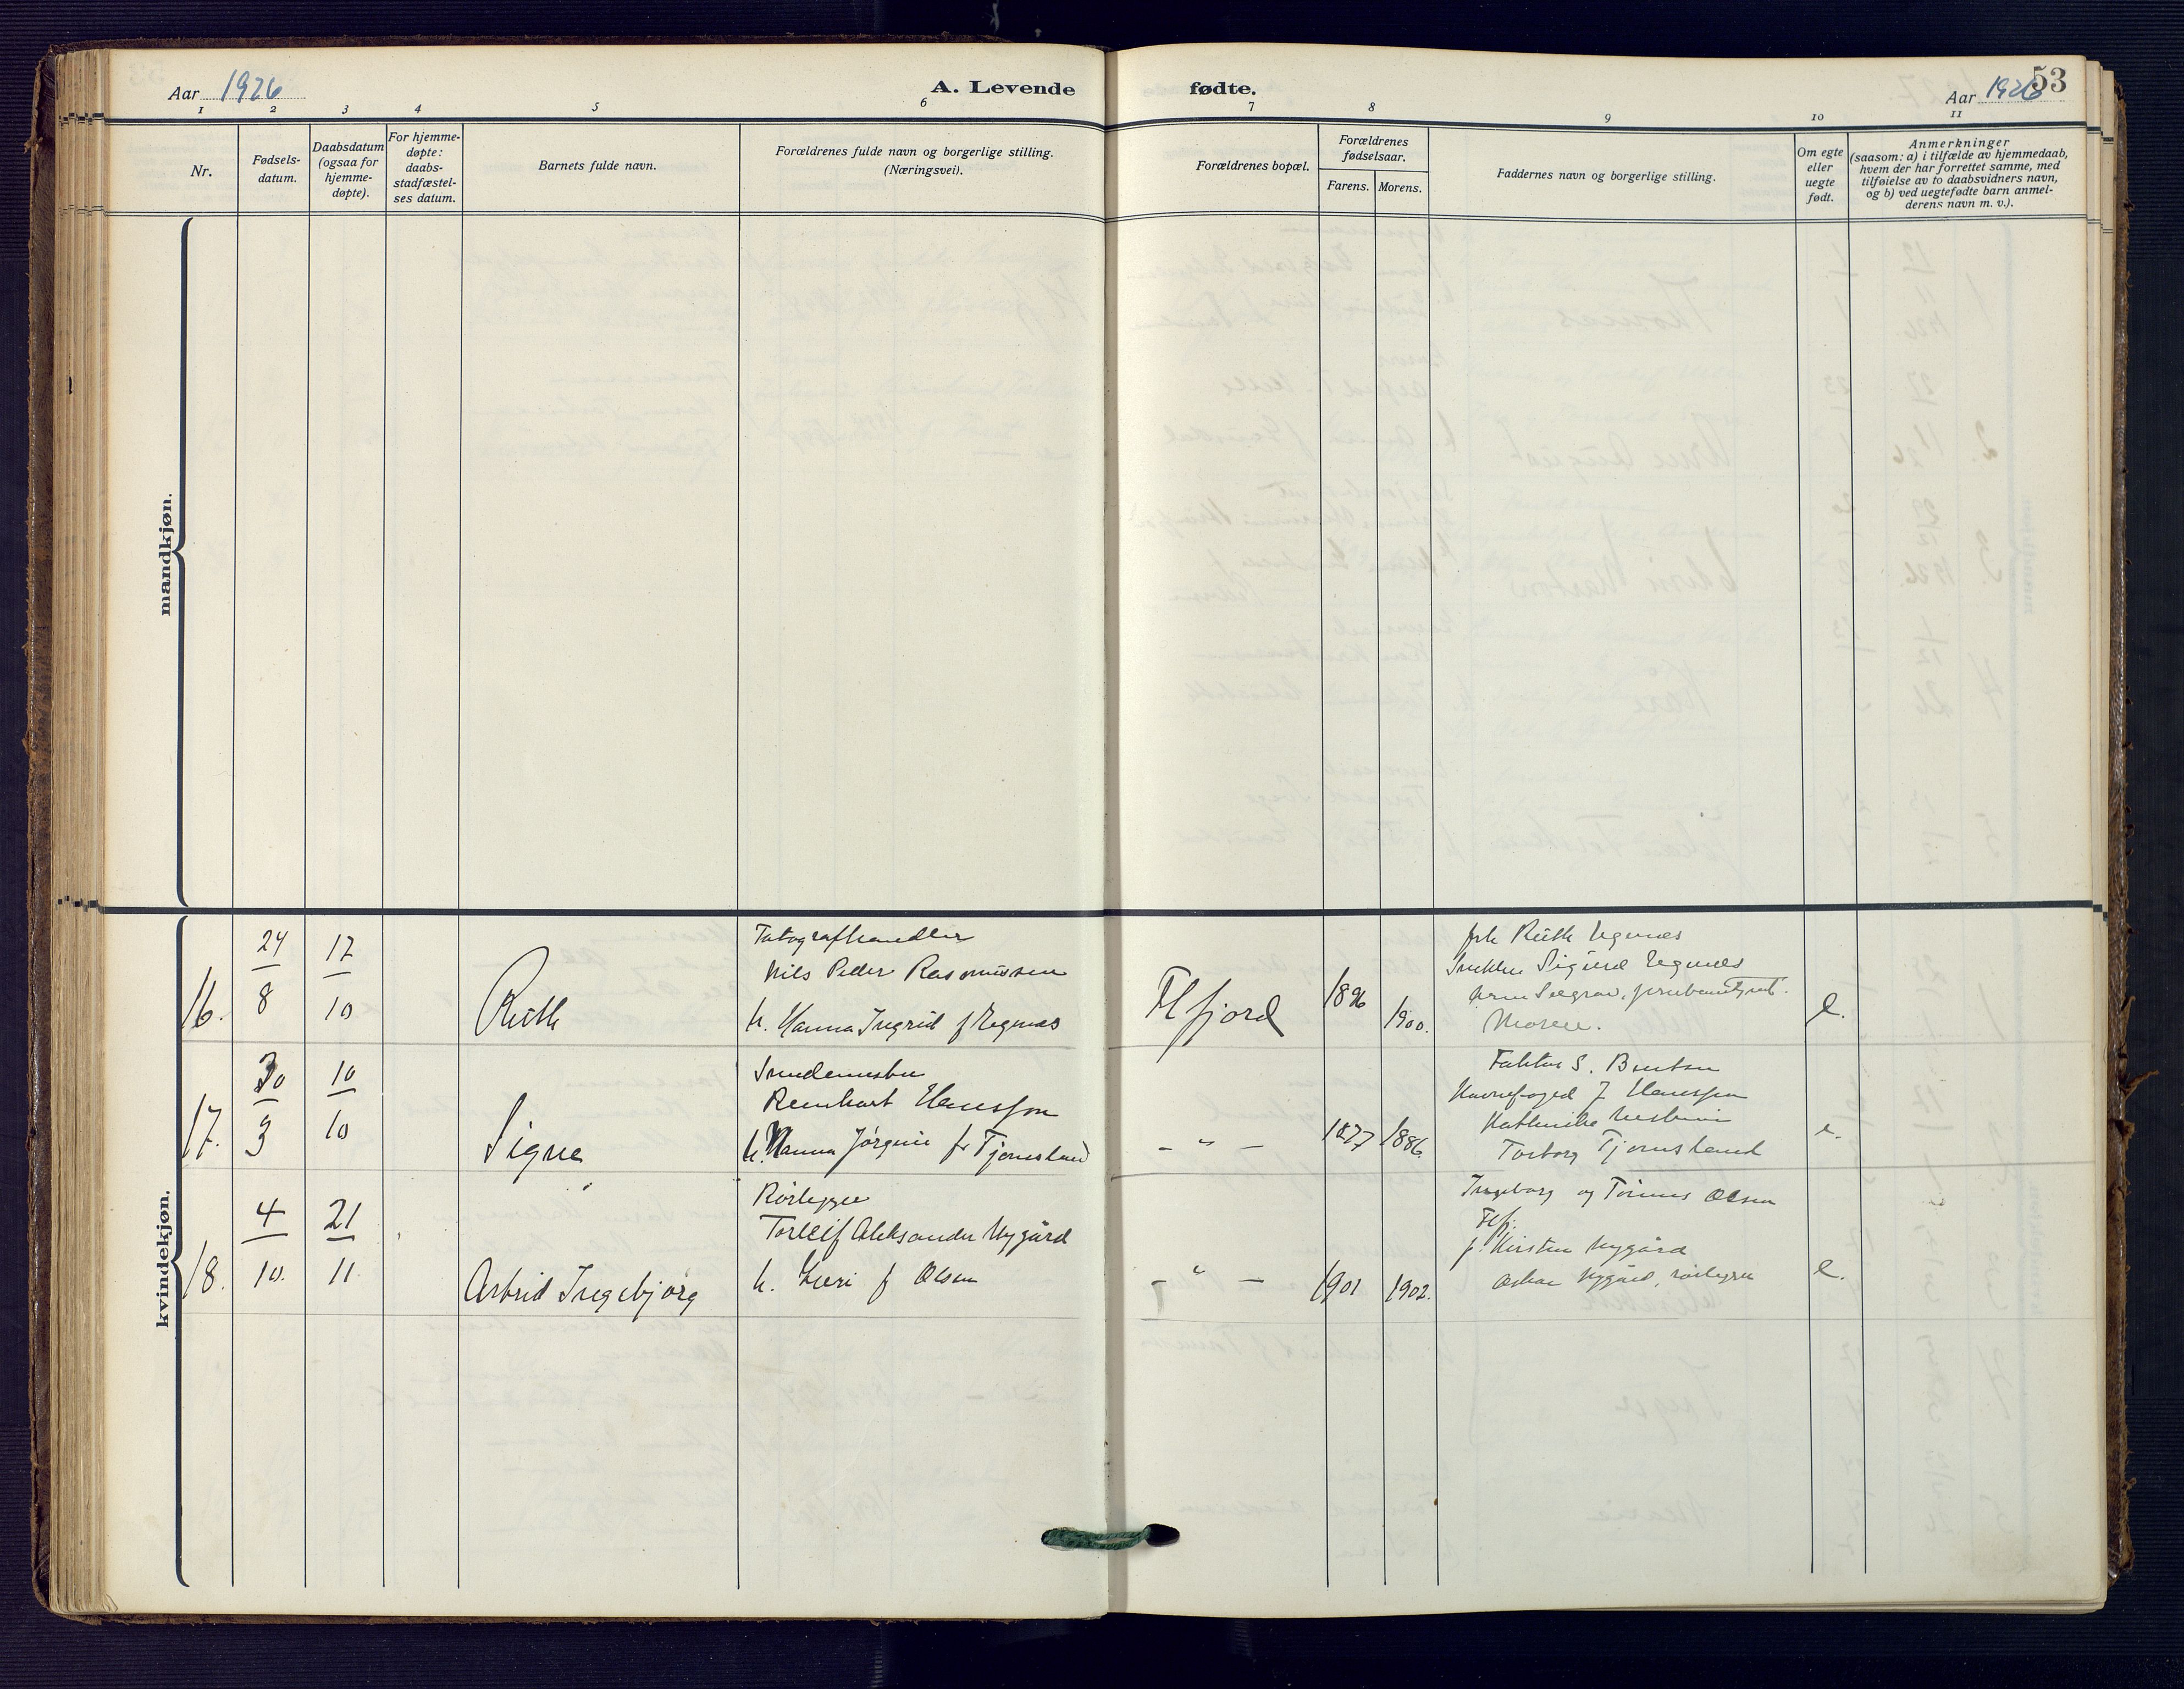 Aar 1926
A. Levende
fødte.
Aar 1926
53
1 2 3 4 5 6 7 8 9 10 11
Nr.
Fødsels-
datum.
Daabsdatum
(ogsaa for
hjemme-
døpte).
For hjemme-
døpte:
daabs-
stadfæstel-
ses datum.
Barnets fulde navn.
Forældrenes fulde navn og borgerlige stilling.
(Næringsvei).
Forældrenes bopæl.
Forældrenes
fødselsaar.
Farens. Morens.
Faddernes navn og borgerlige stilling.
Om egte
eller
uegte
født.
Anmerkninger
(saasom: a) i tilfælde av hjemmedaab,
hvem der har forrettet samme, med
tilføielse av to daabsvidners navn,
og b) ved uegtefødte barn anmel-
derens navn m. v.).
mandkjøn.
kvindekjøn.
16.
24
8
17
10
Ruth
Fotografhandler
Nils Peder Rasmussen
h. Hanna Ingrid f Egenæs
Flfjord
1896
1900.
frk Ruth Egenæs
Snekker Sigurd Egenæs
Moren.
e.
17.
30
3
10
10
Signe
Reinhart Hanssen
h. Hanna Jørgine f. Tjomsland
- " -
1877
1886.
Faktor S. Bentsen
Havnefoged J Hanssen
Torborg Tjomsland
e.
18.
4
10.
21
11
Astrid Ingebjørg
Rørlegger
Torleif Aleksander Nygård
h. Siri f Olsen
- " -
1901
1902.
Ingeborg og Tønnes Olsen
Flfj.
f. Kirsten Nygård
Oskar Nygård, rørlegger
e.